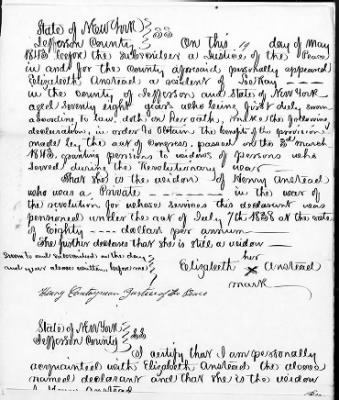 State of New York
Jefferson County } SS On this 19 day of May
1843 before the subscriber a Justice of the Peace
in and for the County aforesaid personally appeared
Elizabeth Anstead a resident of LeRay
in the County of Jefferson and State of New York
aged Seventy eight years who being first duly sworn
according to law, doth on her oath, make the following
declaration, in order to obtain the benefit of the provision
made by the act of Congress, passed on the 3d March
1843, granting pensions to widows of persons who
served during the Revolutionary war
That she is the widow of Henry Anstead
who was a Private in the war of
the revolution for whose services this declarant was
pensioned under the act of July 7th 1838 at the rate
of Eighty dollars per annum
She further declares that she is still a widow
Sworn to and subscribed on the day
and year above written before me
her
Elizabeth X Anstead
mark
Henry Countryman Justice of the Peace
State of New York
Jefferson County } SS
I certify that I am personally
acquainted with Elizabeth Anstead the above
named declarant and that she is the widow
of Henry Anstead